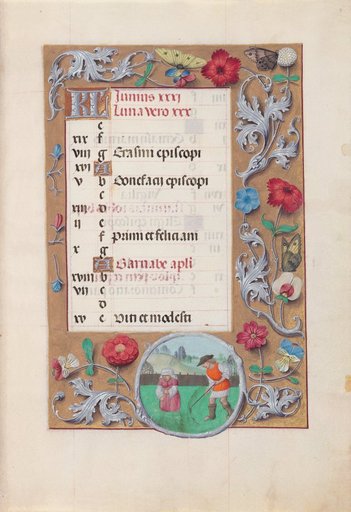 KL Iunius xxxi
Luna vero xxx
e
xix f
viii g Erasmi episcopi
xvi A
v b Bonefacij episcopi
c
xiii d
ii e
f Primi et feliciani
x g
A Barnabe apli
xviii b
vii c
d
xv e Viti et modesti